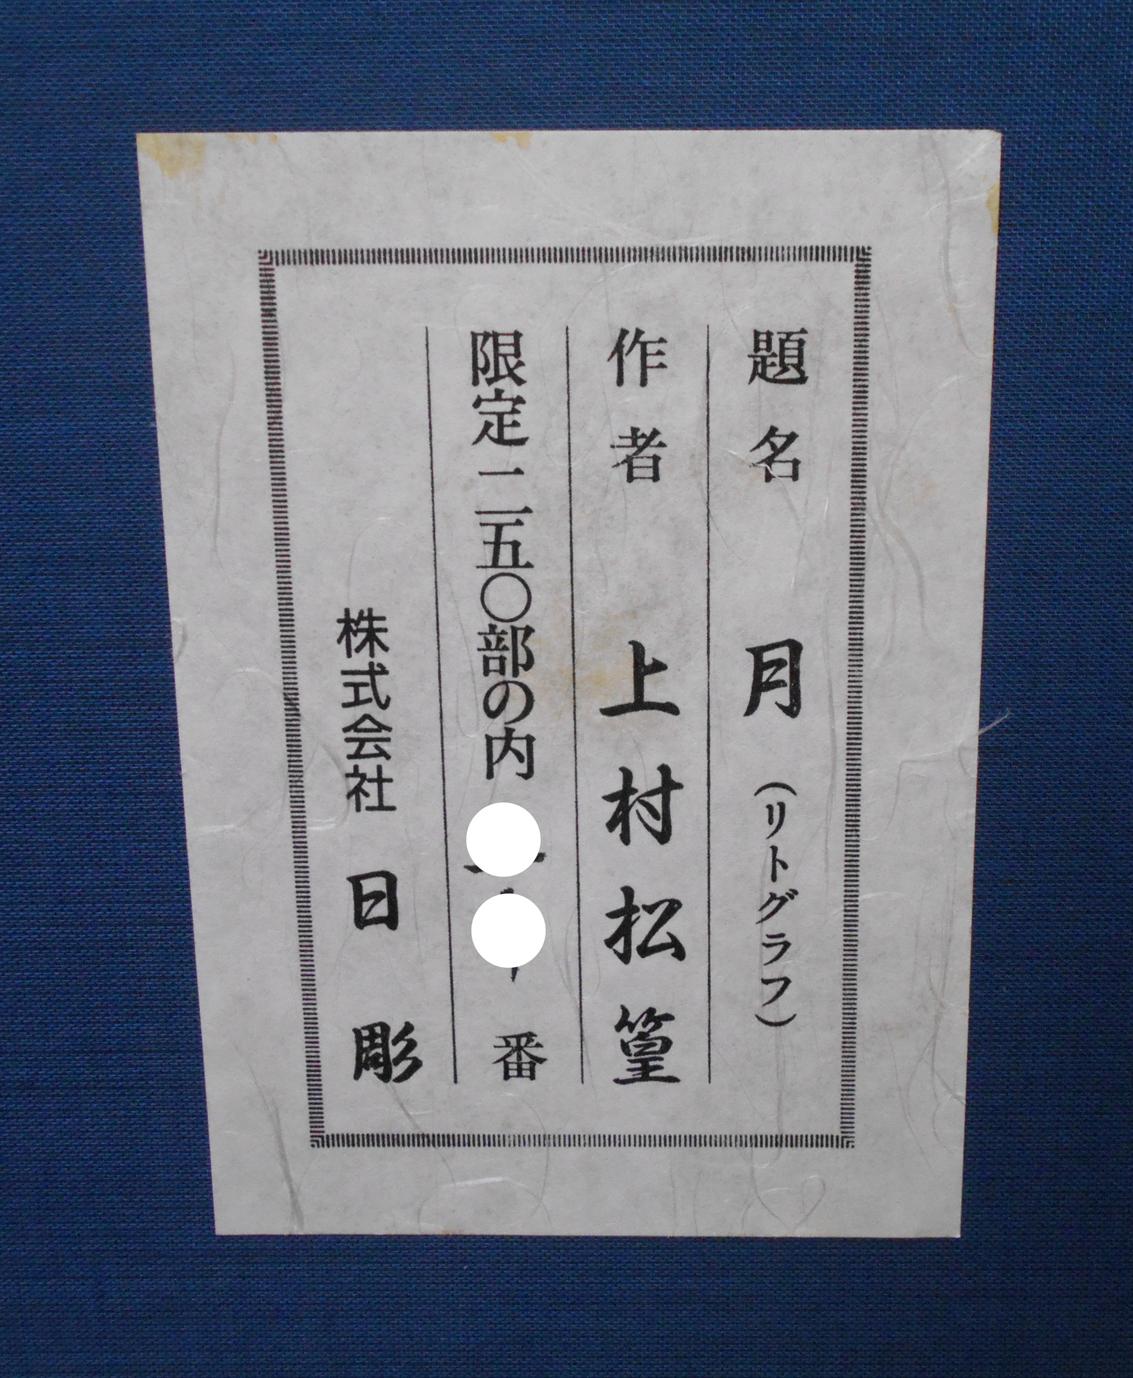 題名 月（リトグラフ）
作者 上村松篁
限定二五〇部の内 番
株式会社 日彫